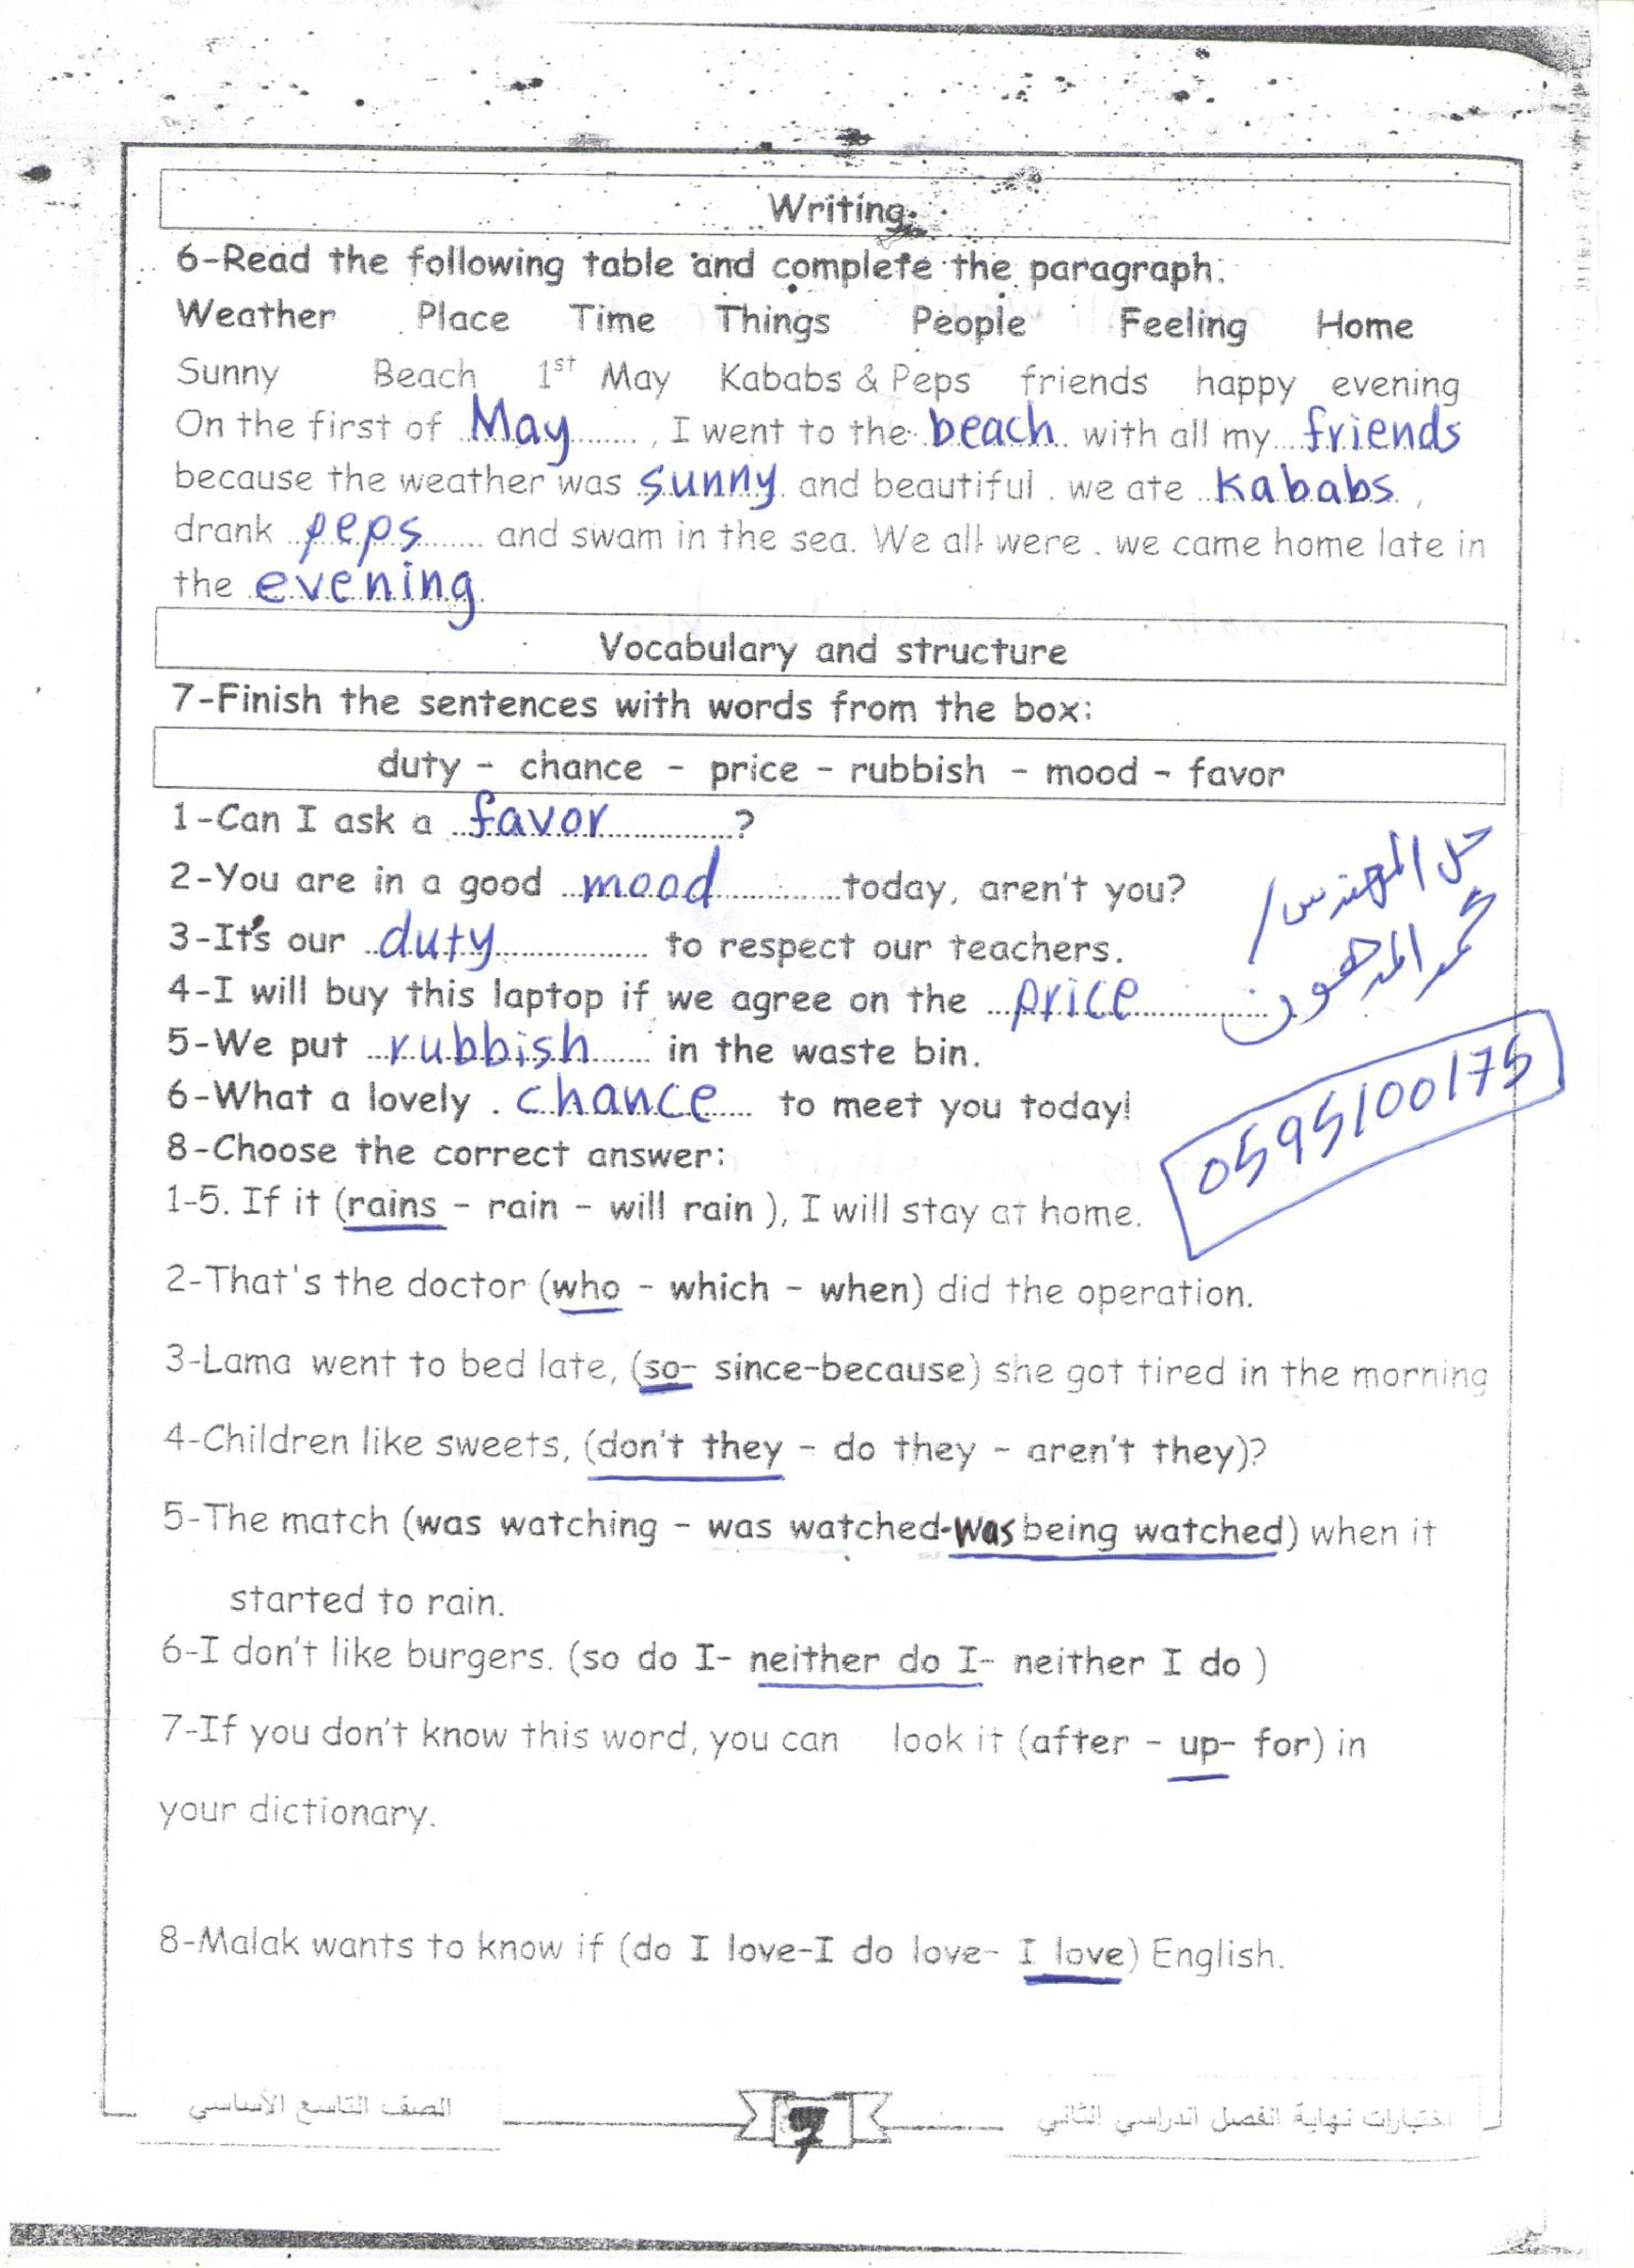 Writing
6-Read the following table and complete the paragraph:
Weather Place Time Things People Feeling Home
Sunny Beach 1st May Kababs & Peps friends happy evening
On the first of May , I went to the beach with all my friends
because the weather was sunny and beautiful . we ate kababs ,
drank peps and swam in the sea. We all were . we came home late in
the evening
Vocabulary and structure
7-Finish the sentences with words from the box:
duty - chance - price - rubbish - mood - favor
1-Can I ask a favor ?
2-You are in a good mood today, aren't you?
3-It's our duty to respect our teachers.
4-I will buy this laptop if we agree on the price
5-We put rubbish in the waste bin.
6-What a lovely . chance to meet you today!
حل المهندس/
محمد المدهون
0595100175
8-Choose the correct answer:
1-5. If it (rains - rain - will rain ), I will stay at home.
2-That's the doctor (who - which - when) did the operation.
3-Lama went to bed late, (so- since-because) she got tired in the morning
4-Children like sweets, (don't they - do they - aren't they)?
5-The match (was watching - was watched-was being watched) when it
started to rain.
6-I don't like burgers. (so do I- neither do I- neither I do )
7-If you don't know this word, you can look it (after - up- for) in
your dictionary.
8-Malak wants to know if (do I love-I do love- I love) English.
اختبارات نهاية الفصل الدراسي الثاني 7 الصف التاسع الأساسي